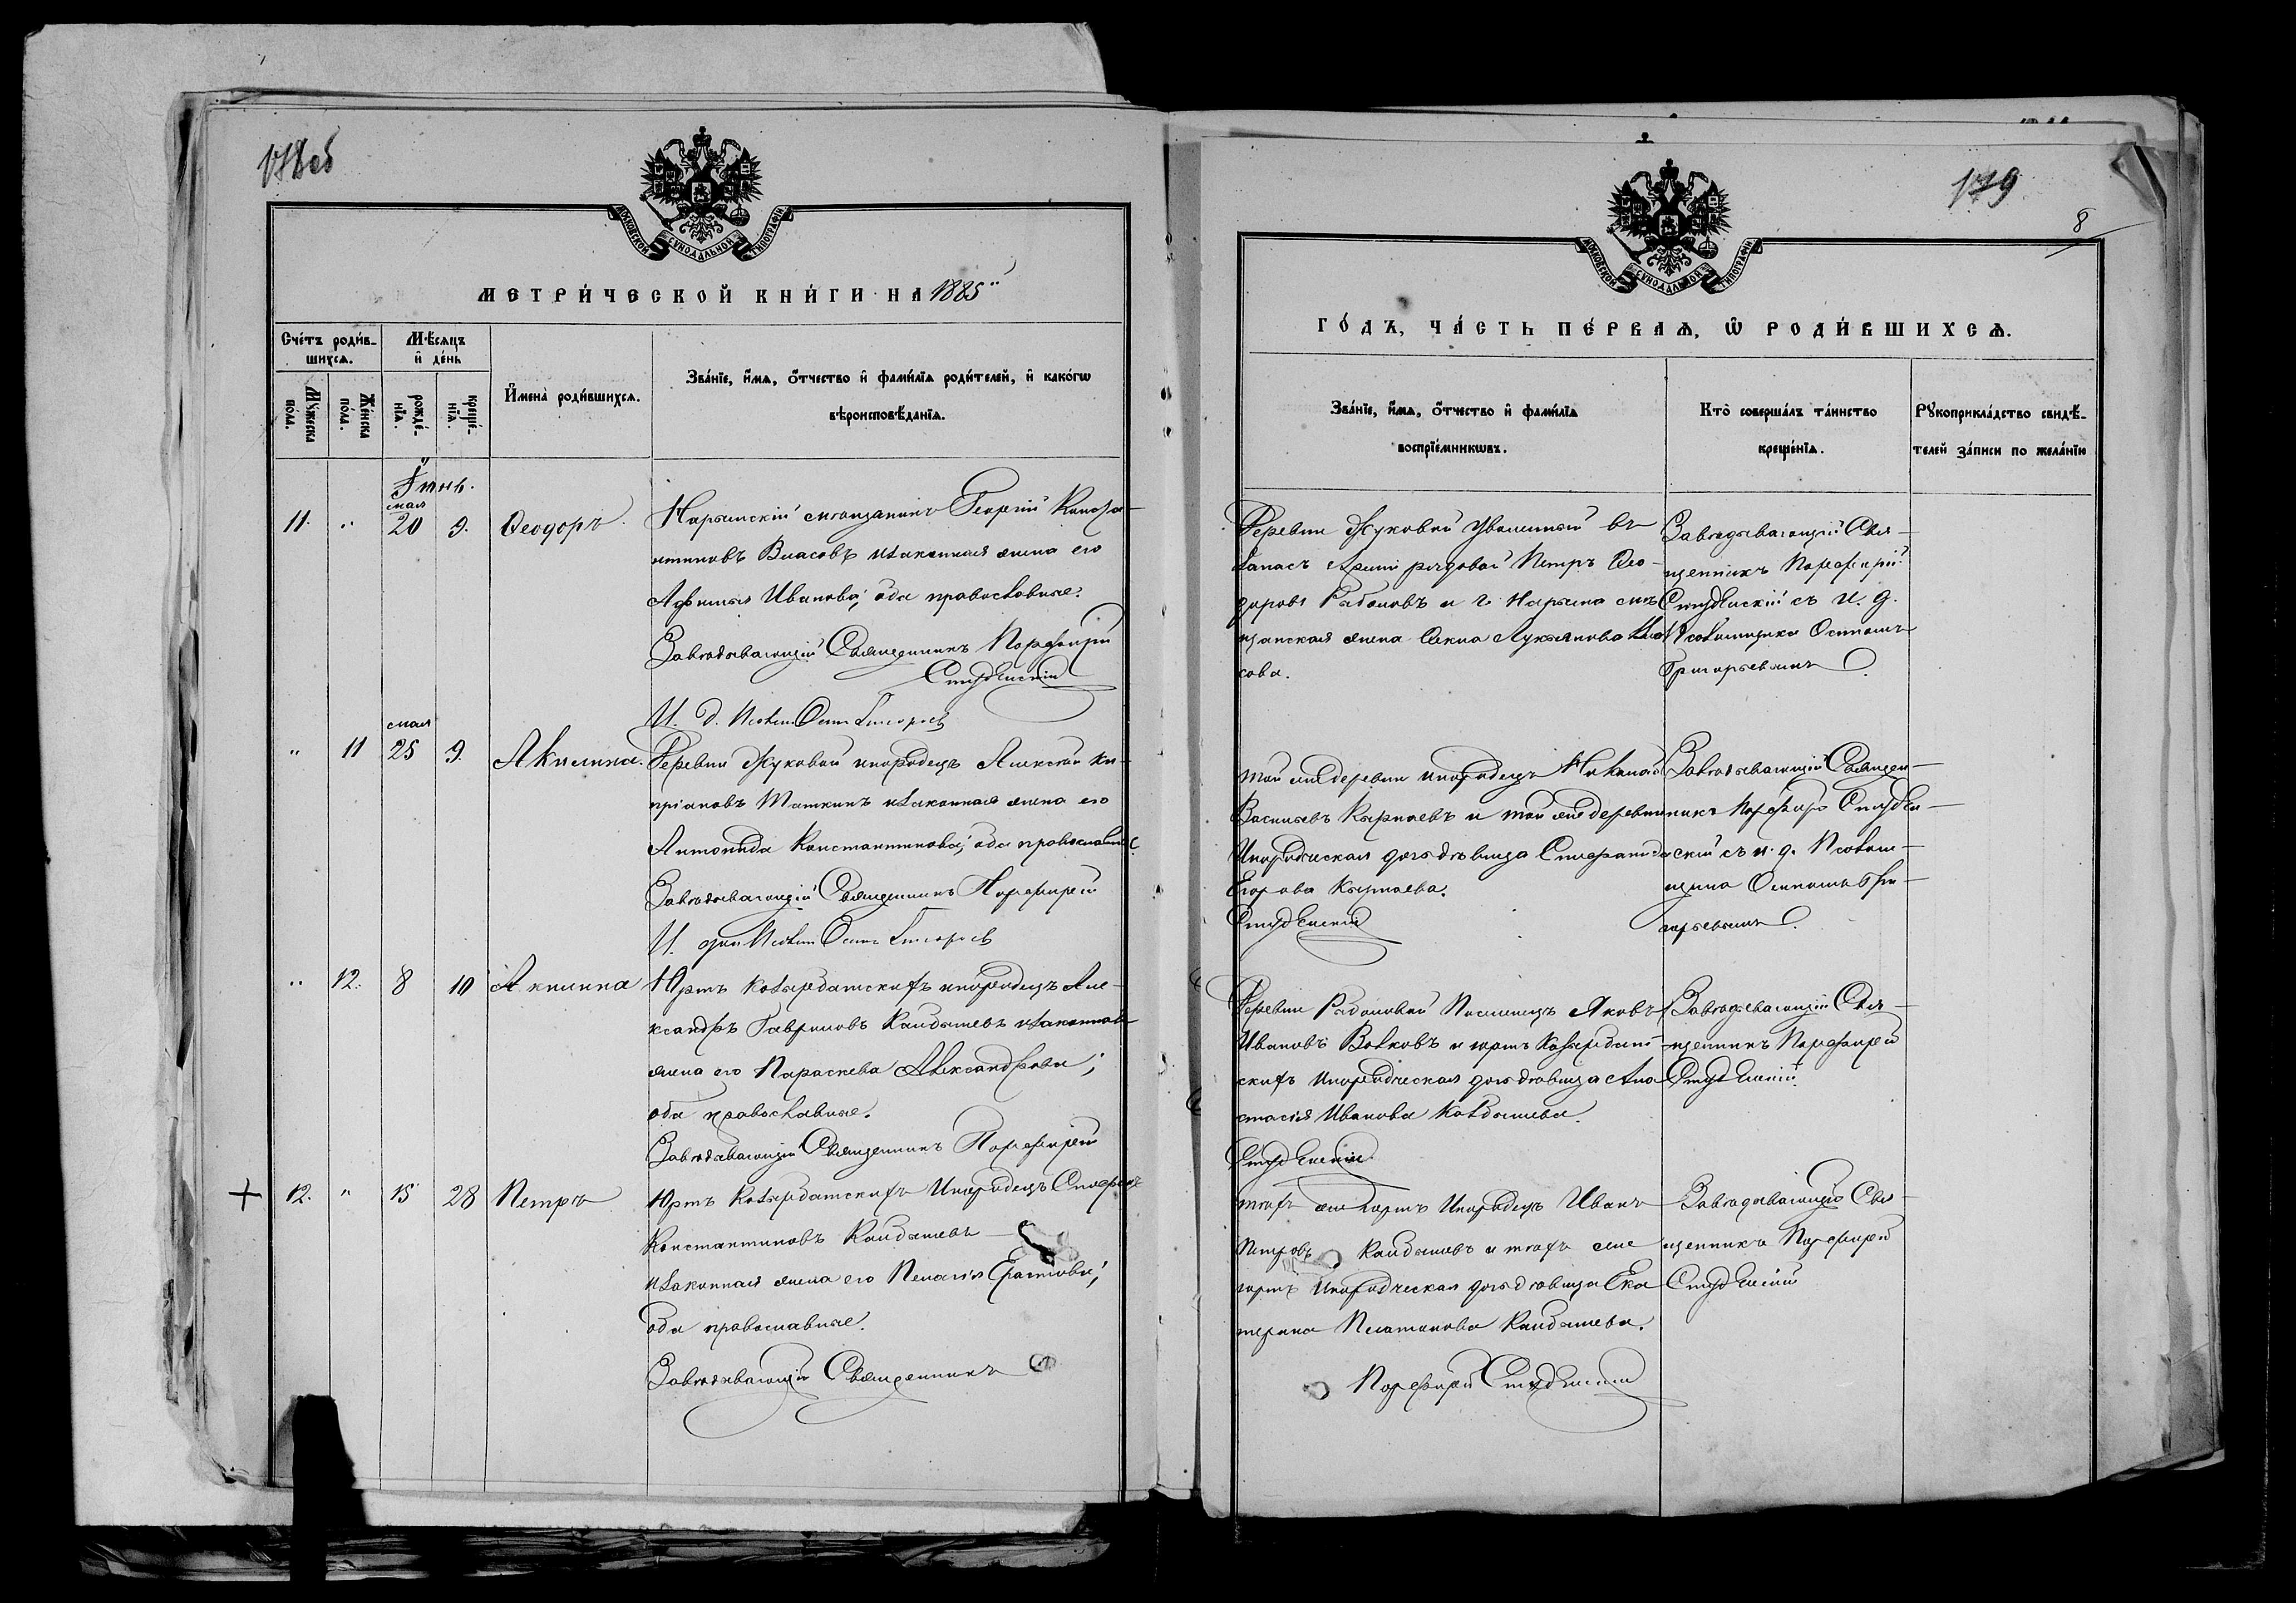 178об
МОСКОВСКОЙ СѴНОДАЛЬНОЙ ТИПОГРАФІИ
МЕТРИ́ЧЕСКОЙ КНИ́ГИ НА 1885
Сче́тъ роди́в-
шихсѧ.
Мѣсѧцъ
и҆ де́нь
Мꙋ́жеска по́ла.
Же́нска по́ла.
рожде́-нїѧ.
креще́-нїѧ.
И҆мена̀ роди́вшихсѧ.
Зва́нїе, и҆́мѧ, ѻ҆́тчество и҆ фами́лїѧ роди́телей, и҆ како́гѡ
вѣроисповѣ́данїѧ.
Іюнь.
мая
11. " 20 9. Ѳеодоръ. Нарымскій мѣщанинъ Георгій Конста-
нтиновъ Власовъ и законная жена его
Афимья Иванова; оба православные.
Завѣдывающій Священникъ Порфирій
Студенскій
И. д. Псалом. Осип Григорьев
мая
" 11 25 9. Акилина. Деревни Жуковой инородецъ Алексѣй Ки-
пріановъ Тяткинъ и законная жена его
Антонида Константинова; оба православные.
Завѣдывающій Священникъ Порфирій
И. дол. Псалом. Осип Григорьев
" 12. 8 10 Акилина Юртъ Колымбатскихъ инородецъ Але-
ксандръ Гавриловъ Каидышевъ и законная
жена его Параскева Александрова;
оба православные.
Завѣдывающій Священникъ Порфирій
+ 12. " 15 28 Петръ Юртъ Колымбатскихъ Инородецъ Стефанъ
Константиновъ Каидышевъ
и законная жена его Пелагія Ерастова;
оба православные.
Завѣдывающій Священникъ
179
8
МОСКОВСКОЙ СѴНОДАЛЬНОЙ ТИПОГРАФІИ
ГО́ДЪ, ЧА́СТЬ ПЕ́РВАѦ, Ѽ РОДИ́ВШИХСѦ.
Зва́нїе, и҆́мѧ, ѻ҆́тчество и҆ фами́лїѧ
воспрїе́мникѡвъ.
Кто̀ соверша́лъ та́инство
креще́нїѧ.
Рꙋкоприкла́дство свидѣ́-
телей за́писи по жела́нїю
Деревни Жуковой уволенный въ
запасъ Арміи рядовой Петръ Ѳео-
доровъ Родоновъ и г. Нарыма мѣ-
щанская жена Секла Лукьянова Вла-
сова.
Завѣдывающій Свя-
щенникъ Порфирій
Студенскій съ И. д.
Псаломщика Осипомъ
Григорьевымъ.
той же деревни инородецъ Николай
Васильевъ Кырнаевъ и той же деревни
Инородческая дочь дѣвица Стефанида
Егорова Кырнаева.
Студенскій
Завѣдывающій Священ-
никъ Порфирій Студен-
скій съ и. д. Псалом-
щика Осипомъ Гри-
горьевымъ.
Деревни Родоновой Поселенецъ Яковъ
Ивановъ Волковъ и юртъ Колымбат-
скихъ Инородческая дочь дѣвица Ана-
стасія Иванова Колдышева.
Студенскій
Завѣдывающій Свя-
щенникъ Порфирій
Студенскій.
тѣхъ же Юртъ Инородецъ Иванъ
Петровъ Каидышевъ и тѣхъ же
юртъ Инородческая дочь дѣвица Ека-
терина Платонова Каидышева.
Порфирій Студенскій
Завѣдывающій Свя-
щенникъ Порфирій
Студенскій